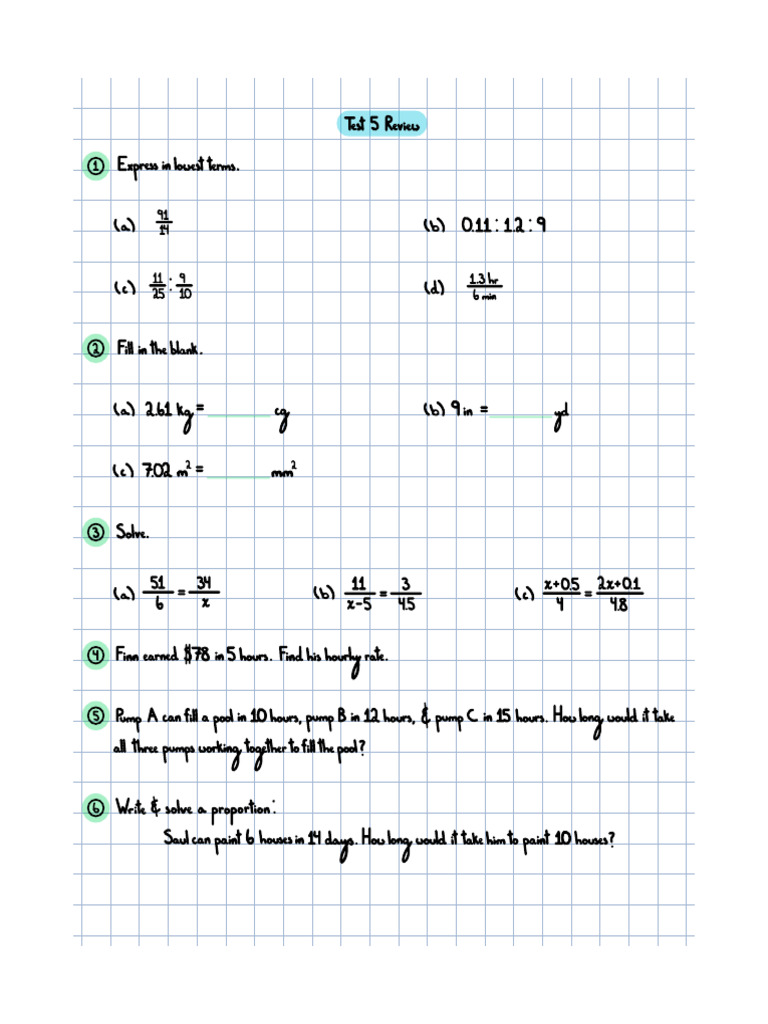 Test 5 Review
① Express in lowest terms.
(a) 91/14 (b) 0.11 : 1.2 : 9
(c) 11/25 : 9/10 (d) 1.3 hr/6 min
② Fill in the blank.
(a) 2.61 kg = ______ cg (b) 9 in = ______ yd
(c) 7.02 m² = ______ mm²
③ Solve.
(a) 51/6 = 34/x (b) 11/x-5 = 3/4.5 (c) x+0.5/4 = 2x+0.1/4.8
④ Finn earned $78 in 5 hours. Find his hourly rate.
⑤ Pump A can fill a pool in 10 hours, pump B in 12 hours, & pump C in 15 hours. How long would it take
all three pumps working together to fill the pool?
⑥ Write & solve a proportion:
Saul can paint 6 houses in 14 days. How long would it take him to paint 10 houses?